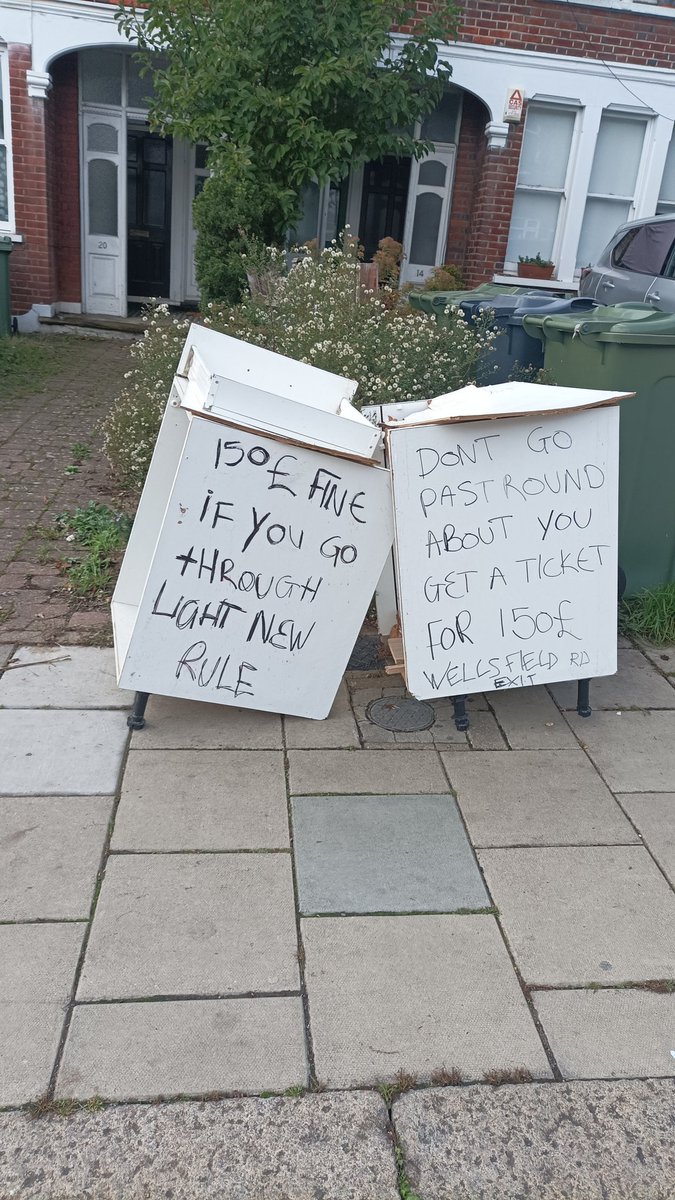 20
14
150£ FINE
iF YOU GO
THROUGH
LIGHT NEW
RULE
DONT GO
PAST ROUND
ABOUT YOU
GET A TICKET
FOR 150£
WELLSFIELD RD
EXIT